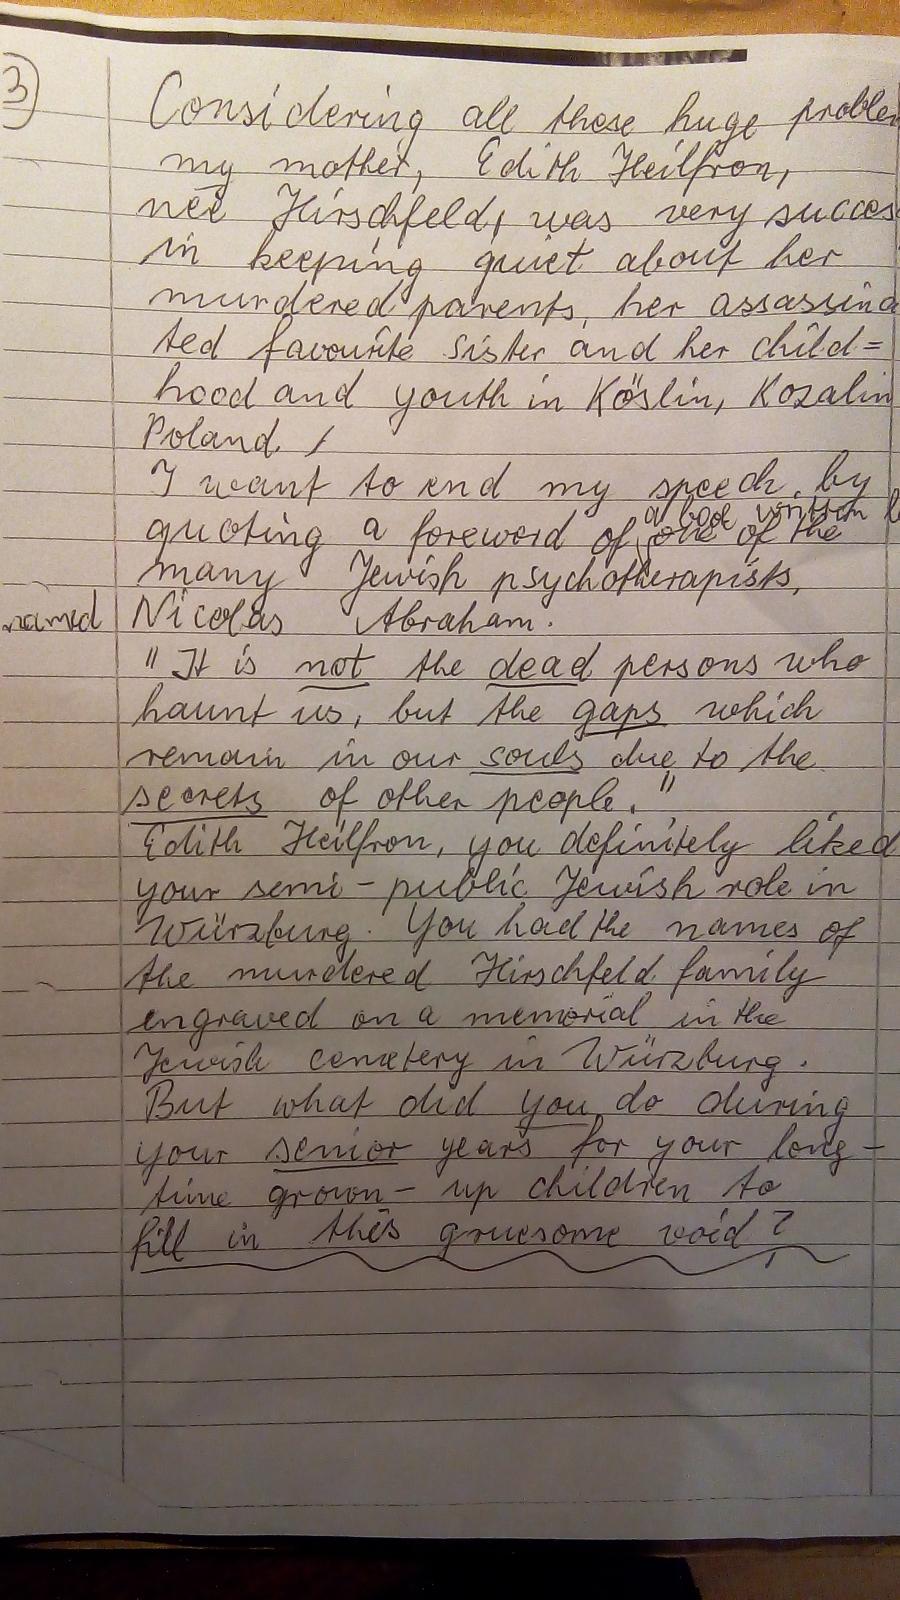 3
Considering all these huge proble
my mother, Edith Heilfron,
née Hirschfeld, was very succes
in keeping quiet about her
murdered parents, her assassina
ted favourite sister and her child=
hood and youth in Köslin, Kozalin
Poland. /
I want to end my speech by
a book written
quoting a foreword of one of the
many Jewish psychotherapists,
named Nicolas Abraham.
"It is not the dead persons who
haunt us, but the gaps which
remain in our souls due to the
secrets of other people."
Edith Heilfron, you definitely liked
your semi-public Jewish role in
Würzburg. You had the names of
the murdered Hirschfeld family
engraved on a memorial in the
Jewish cemetery in Würzburg.
But what did you do during
your senior years for your long-
time grown-up children to
fill in this gruesome void?